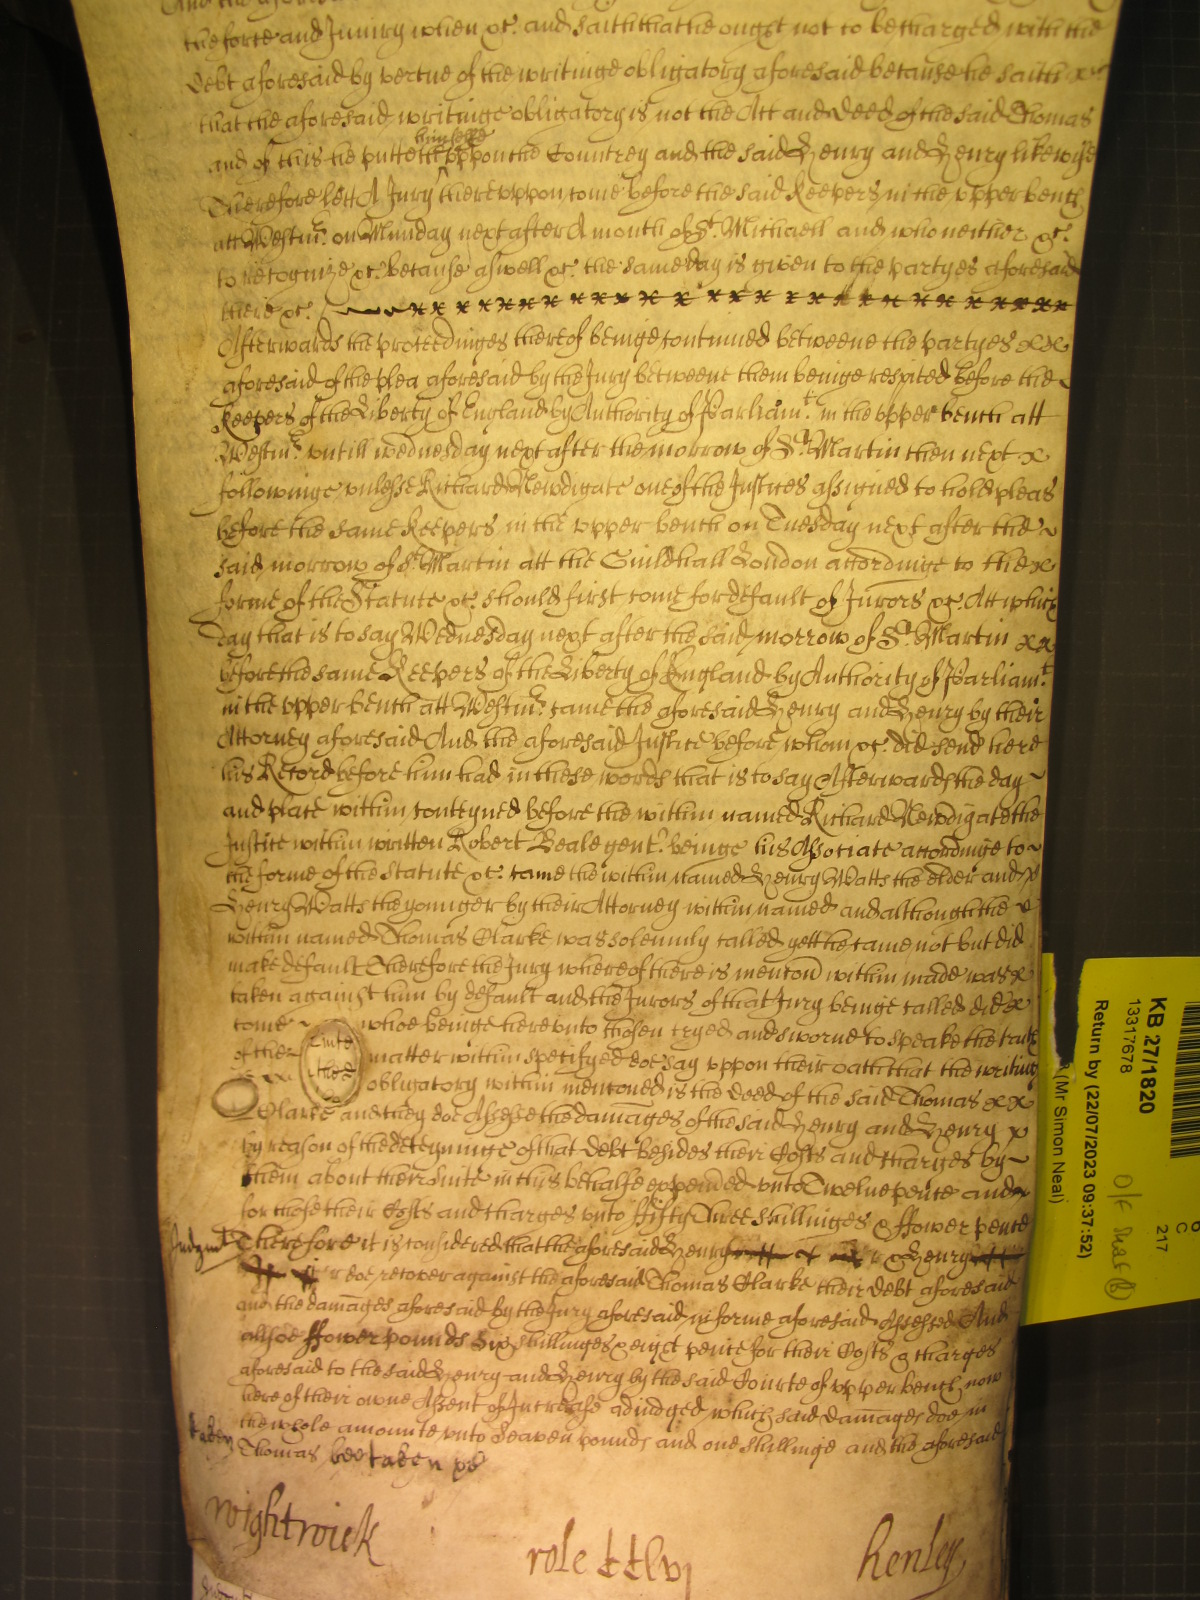 the force and Iniury when &c. and saith that he ought not to be charged with the
debt aforesaid by vertue of the writinge obligatory aforesaid because he saith
that the aforesaid writinge obligatory is not the Act and Deed of the said Thomas
and of this he putteth himselfe vppon the Countrey and the said Henry and Henry likewise
Therefore lett A Jury therevppon come before the said Keepers in the vpper bench
att Westmr. on Munday next after A month of St. Michaell and who neither &c.
to recognize &c. because aswell &c. the same day is given to the partyes aforesaid
there &c.
Afterwards the proceedinges thereof beinge continued betweene the partyes
aforesaid of the plea aforesaid by the Jury betweene them beinge respited before the
Keepers of the Liberty of England by Authority of Parliamt. in the vpper bench att
Westmr. vntill wednesday next after the morrow of St. Martin then next
followinge vnlesse Richard Newdigate one of the Justices assigned to hold pleas
before the same Keepers in the vpper bench on Tuesday next after the
said morrow of St. Martin att the Guildhall London accordinge to the
forme of the Statute &c. should first come for default of Jurors &c. Att which
day that is to say Wednesday next after the said morrow of St. Martin
before the same Keepers of the Liberty of England by Authority of Parliamt.
in the vpper bench att Westmr. came the aforesaid Henry and Henry by their
Attorney aforesaid And the aforesaid Justice before whom &c. did send here
his Record before him had in these words that is to say Afterwards the day
and place within conteyned before the within named Richard Newdigate the
Justice within written Robert Beale gent. beinge his Associate accordinge to
the forme of the Statute &c. came the within named Henry Watts the elder and
Henry Watts the younger by their Attorney within named and although the
within named Thomas Clarke was solemnly called yett he came not but did
make default Therefore the Jury whereof there is mencon within made was
taken against him by default and the Jurors of that Jury beinge called did
come whoe beinge herevnto chosen tryed and sworne to speake the truth
of the matter within specifyed doe say vppon their oath that the writing
obligatory within menconed is the deed of the said Thomas
Clarke and they doe Assesse the damages of the said Henry and Henry
by reason of the deteyninge of that debt besides their Costs and charges by
them about their suite in this behalfe expended vnto Twelve pence and
for those their Costs and charges vnto ffifty Three shillinges & ffower pence
Judgmt Therefore it is considered that the aforesaid Henry & Henry
doe recover against the aforesaid Thomas Clarke their debt aforesaid
and the damages aforesaid by the Jury aforesaid in forme aforesaid Assessed And
alsoe ffower pounds Six shillinges & eight pence for their Costs & charges
aforesaid to the said Henry and Henry by the said Courte of vpper bench now
here of their owne Assent of Increase adiudged which said damages doe in
the whole amounte vnto Seaven pounds and one shillinge and the aforesaid
taken Thomas bee taken &c
Wightwick role cclvj henley
KB 27/1820
13317678
Return by (22/07/2023 09:37:52)
(Mr Simon Neal)
C
217